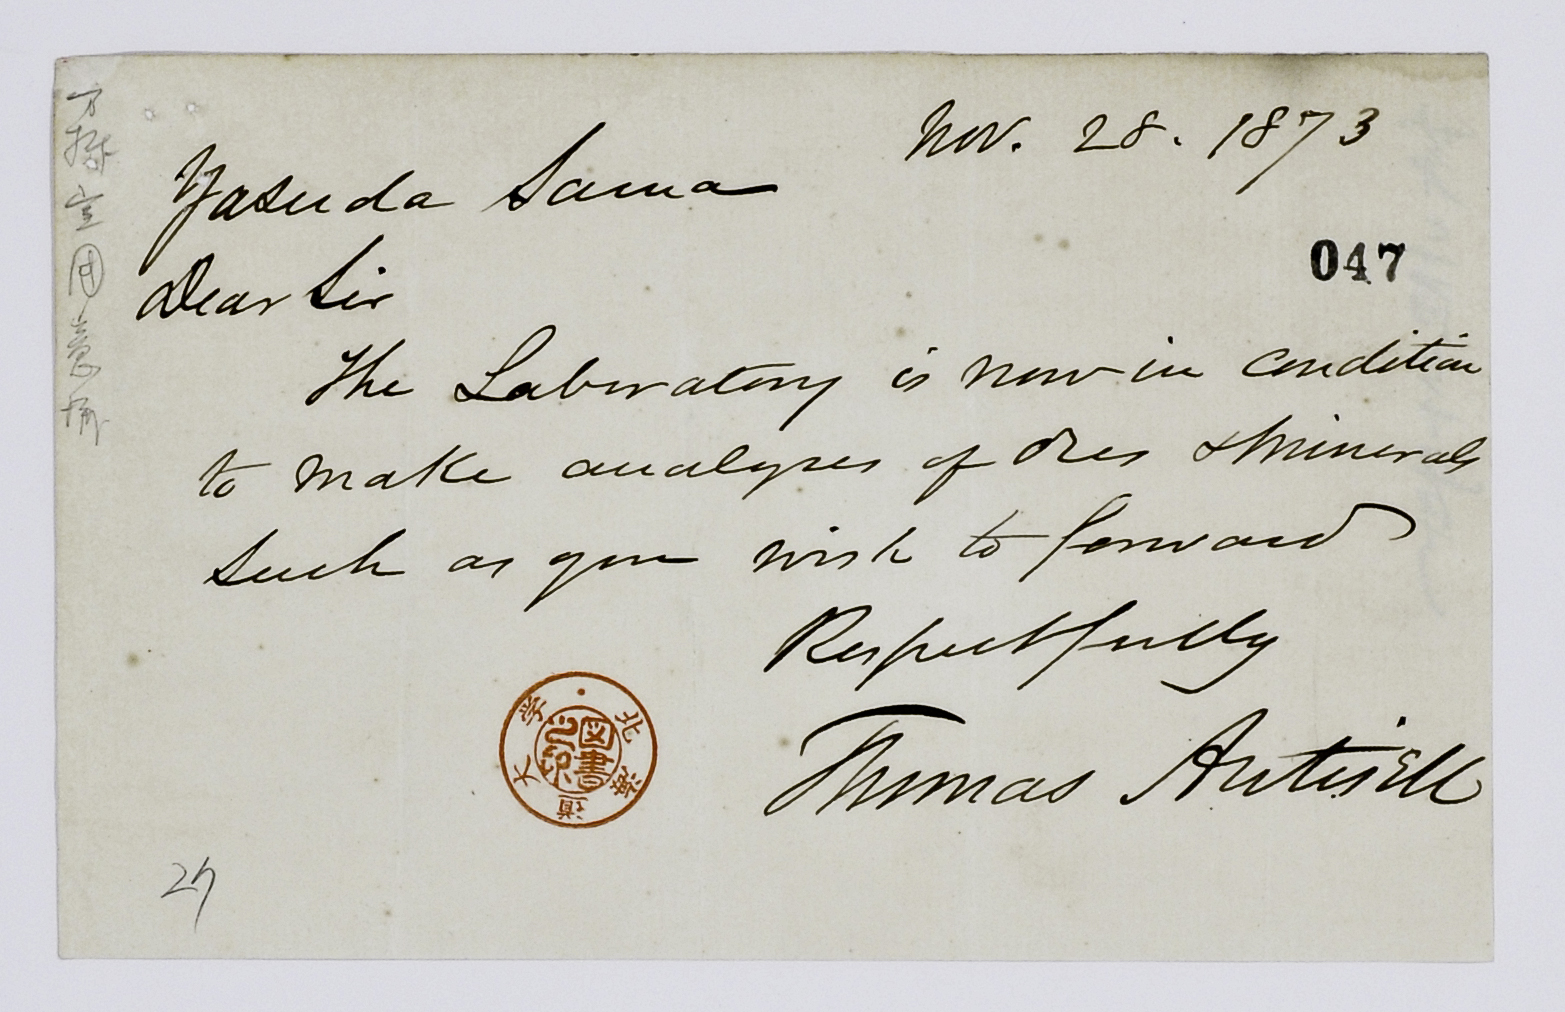 Nov. 28. 1873
Yasuda Sama
047
Dear Sir
The Laboratory is now in condition
to make analyses of Ores & Minerals
such as you wish to forward
Respectfully
Thomas Antisell
北海道大学
図書之印
27